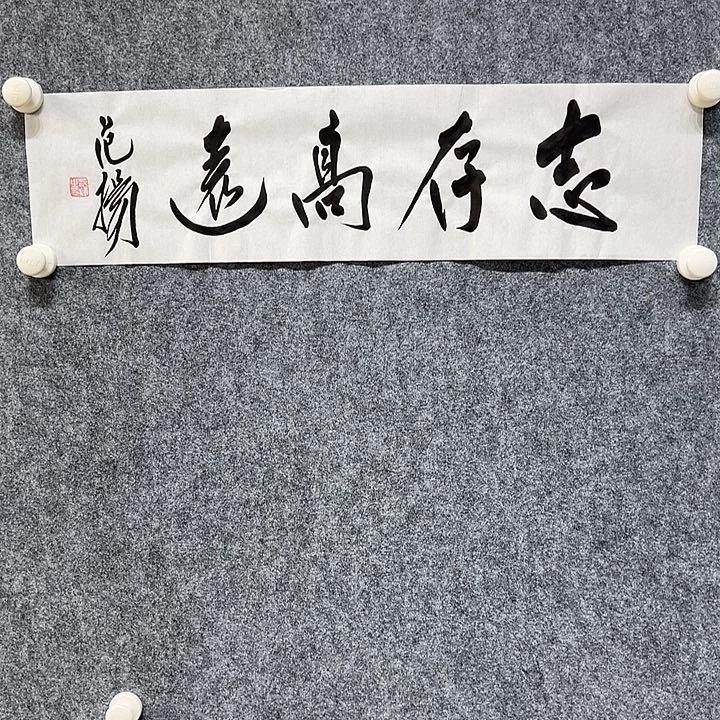 志存高遠
范揚